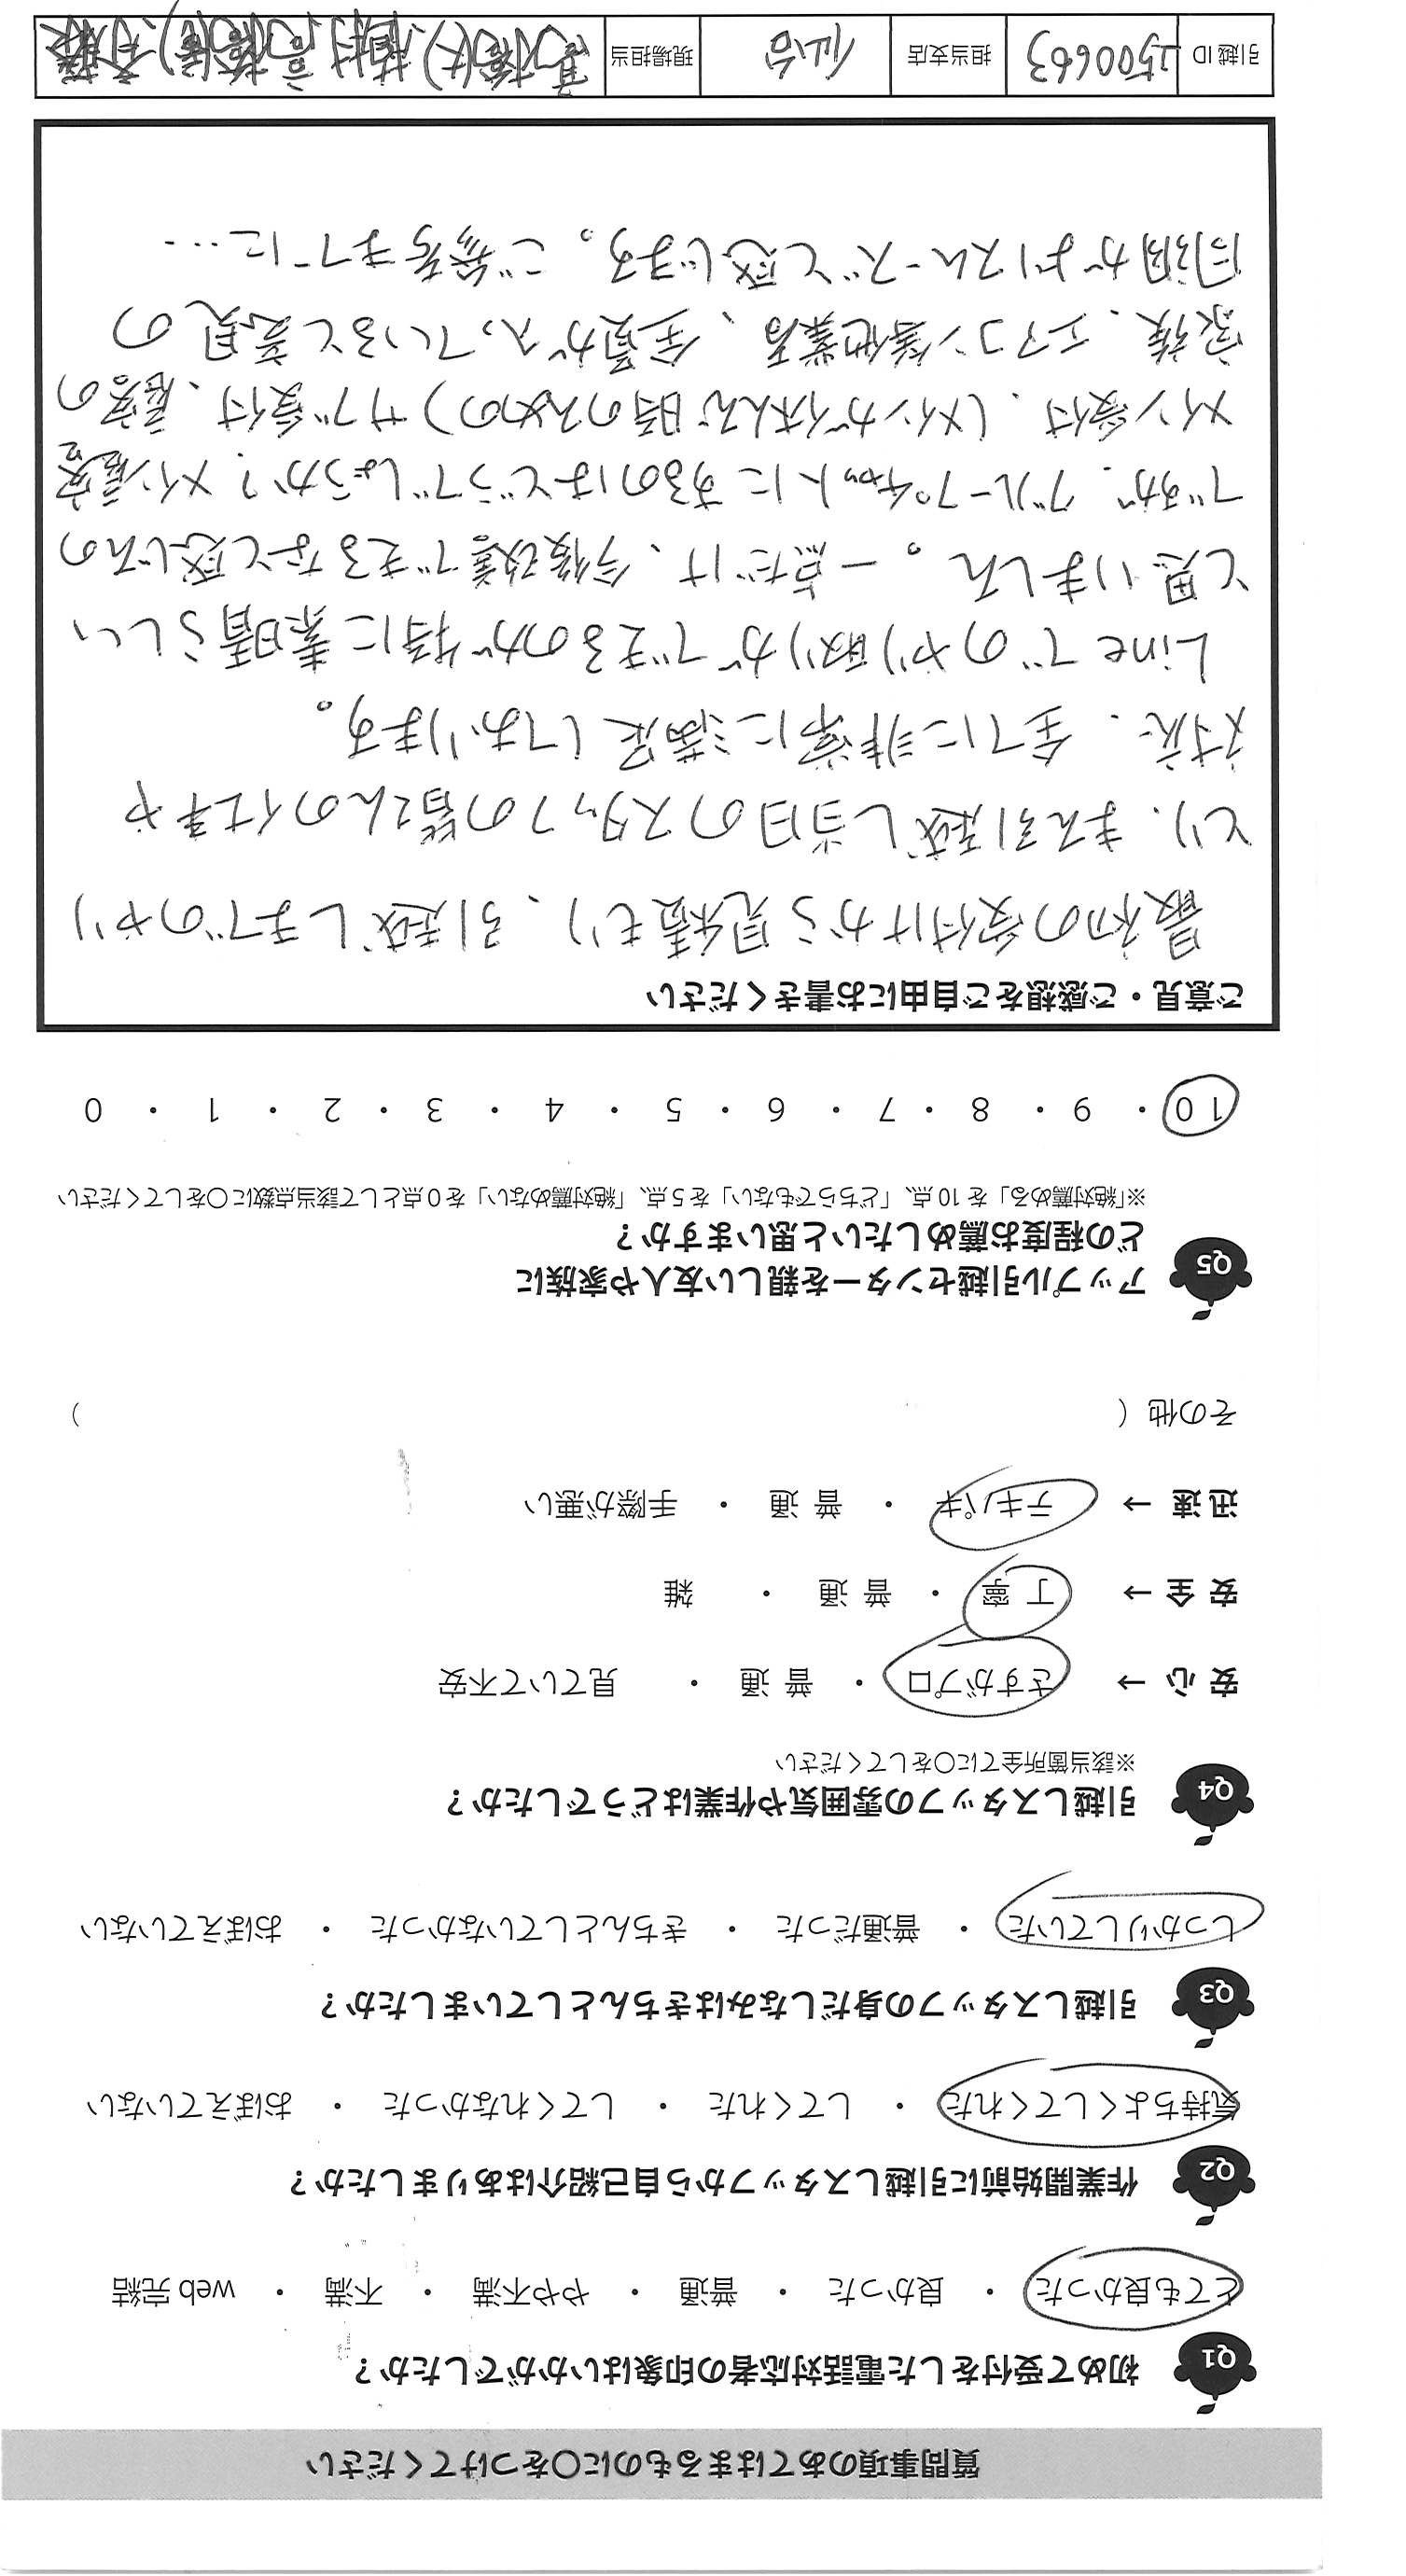 質問事項のあてはまるものに○をつけてください
Q1 初めて受付をした電話対応者の印象はいかがでしたか？
とても良かった ・ 良かった ・ 普通 ・ やや不満 ・ 不満 ・ web 完結
Q2 作業開始前に引越しスタッフから自己紹介はありましたか？
気持ちよくしてくれた ・ してくれた ・ してくれなかった ・ おぼえていない
Q3 引越しスタッフの身だしなみはきちんとしていましたか？
しっかりしていた ・ 普通だった ・ きちんとしていなかった ・ おぼえていない
Q4 引越しスタッフの雰囲気や作業はどうでしたか？
※該当箇所全てに○をしてください
安 心 → さすがプロ ・ 普 通 ・ 見ていて不安
安 全 → 丁 寧 ・ 普 通 ・ 雑
迅 速 → テキパキ ・ 普 通 ・ 手際が悪い
その他（ ）
Q5 アップル引越センターを親しい友人や家族に
どの程度お薦めしたいと思いますか？
※「絶対薦める」を 10 点、「どちらでもない」を 5 点、「絶対薦めない」を 0 点として該当点数に○をしてください
10 ・ 9 ・ 8 ・ 7 ・ 6 ・ 5 ・ 4 ・ 3 ・ 2 ・ 1 ・ 0
ご意見・ご感想をご自由にお書きください
最初の受付けから見積もり、引越しまでのやり
とり、また引越し当日のスタッフの皆さんの仕事や
対応、全てに非常に満足しております。
Lineでのやり取りができるのが特に素晴らしい
と思いました。一点だけ、今後改善できるなと感じたの
ですが、グループチャットにするのはどうでしょうか？メイン営業
メイン受付、(メインが休んだ時のための)サブ受付、客の
家族、エアコン等他業者、全員が入っていると意見の
同調がよりスムーズと感じます。ご参考までに…
引越 ID 2500663 担当支店 仙台 現場担当 高橋(大)、植村、高橋(倖)、斉藤